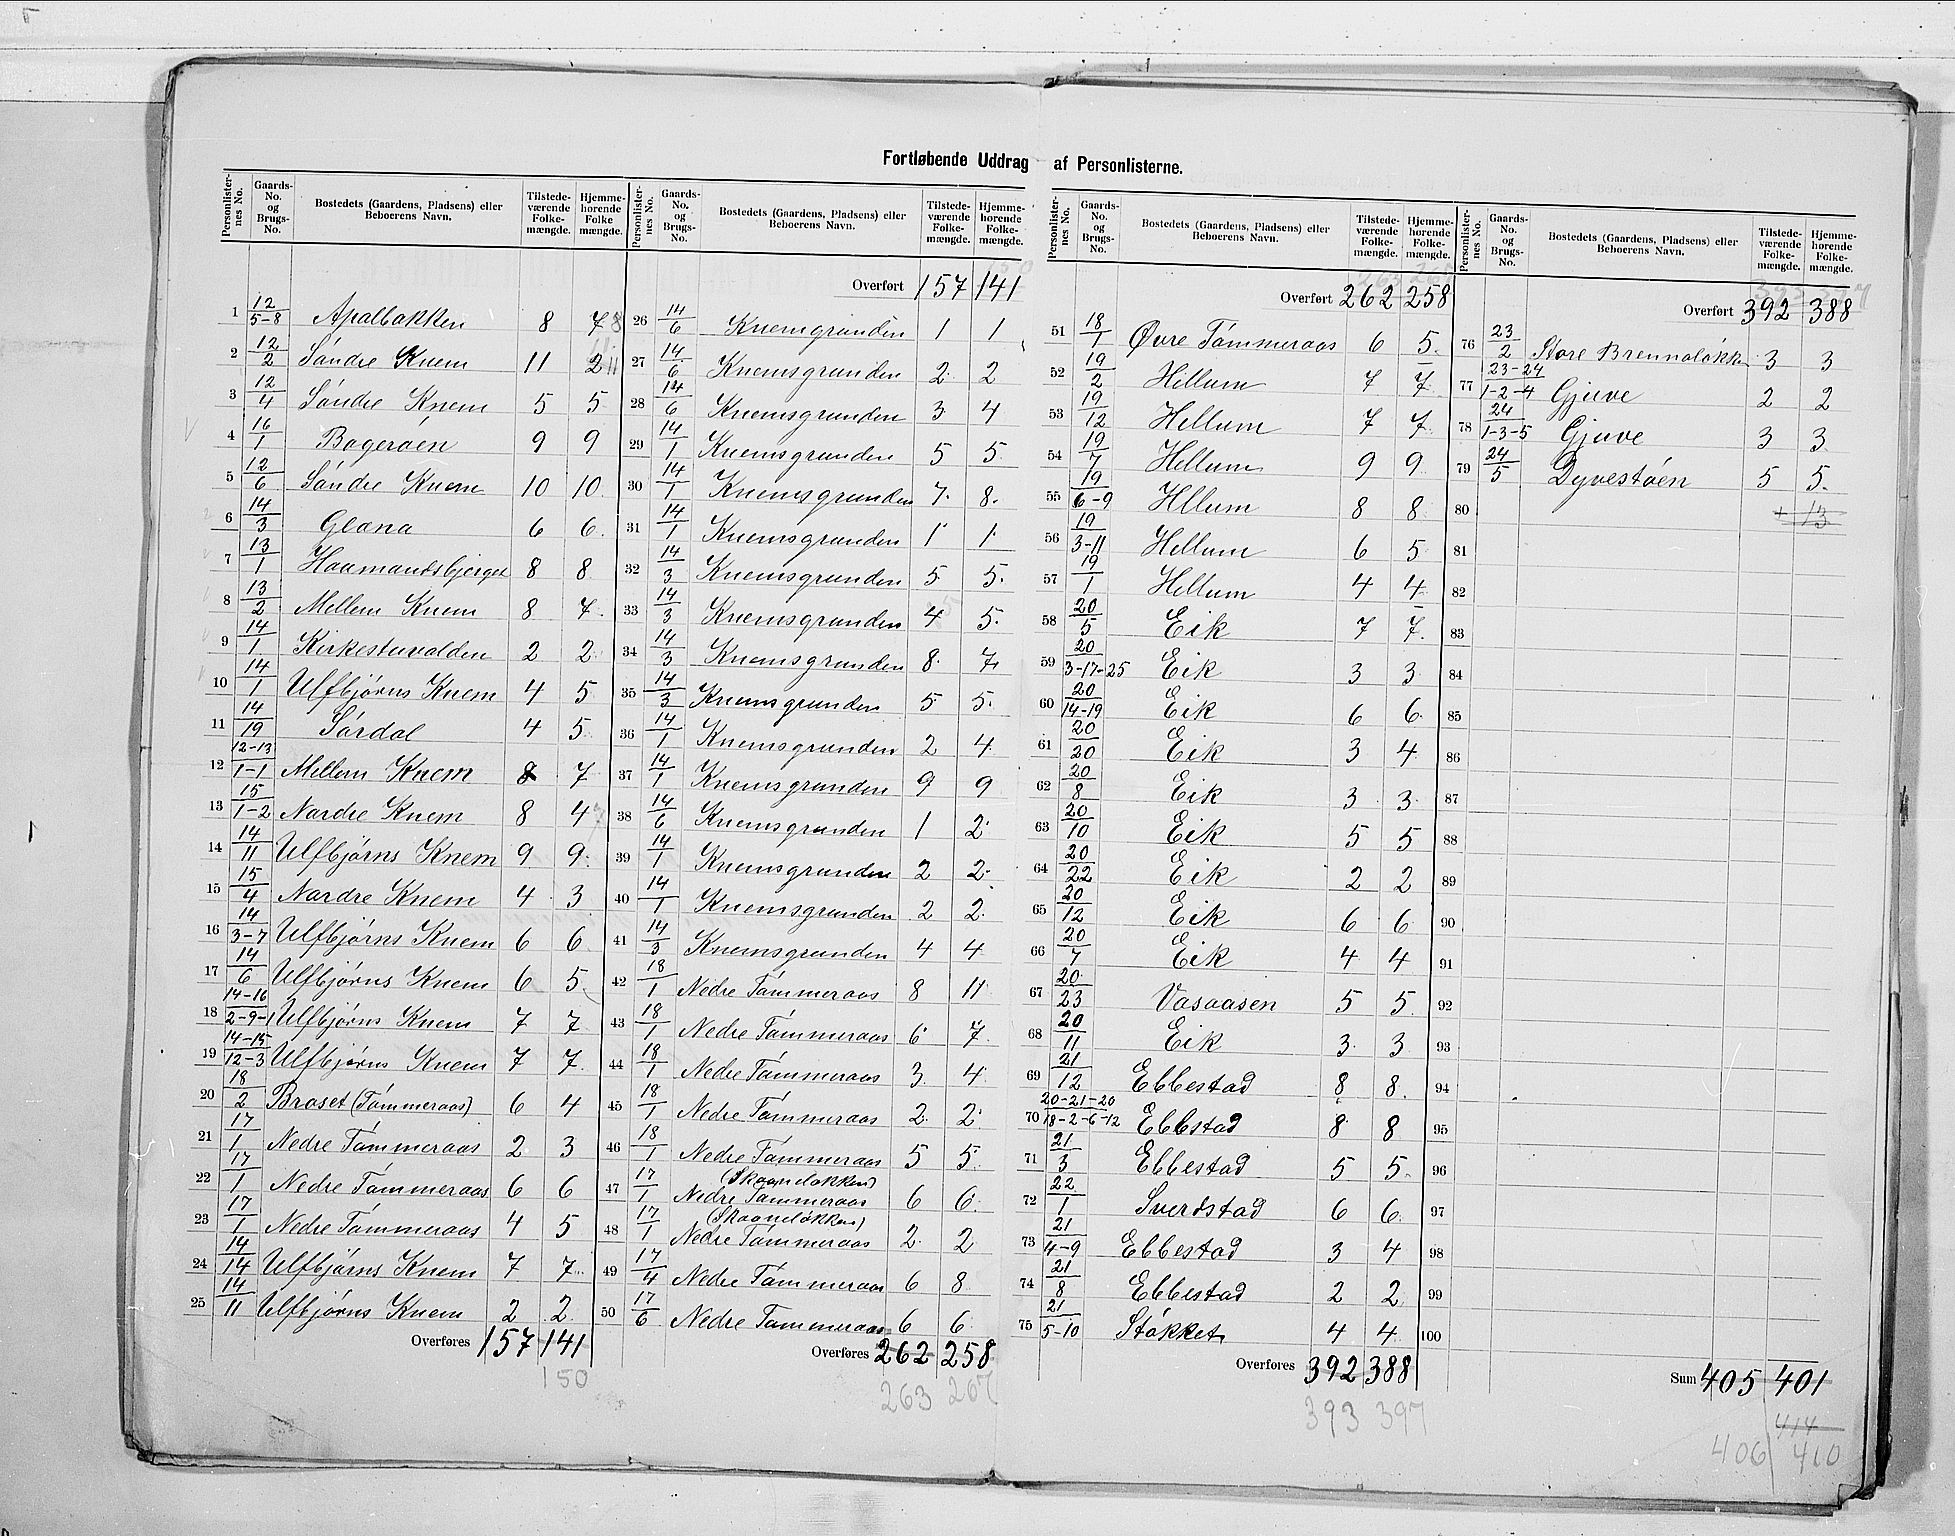 Fortløbende Uddrag af Personlisterne.
Personlisternes No. | Gaards-No. og Brugs-No. | Bostedets (Gaardens, Pladsens) eller Beboerens Navn. | Tilstedeværende Folkemængde. | Hjemmehørende Folkemængde.
1 | 12/5-8 | Apalbakken | 8 | 7 8
2 | 12/2 | Söndre Knem | 11 | 2 11
3 | 12/4 | Söndre Knem | 5 | 5
4 | 16/1 | Bageröen | 9 | 9
5 | 12/6 | Söndre Knem | 10 | 10
6 | 14/3 | Glæna | 6 | 6
7 | 13/1 | Haamandsbjerget | 8 | 8
8 | 13/2 | Mellem Knem | 8 | 7
9 | 14/1 | Kirkestuvolden | 2 | 2
10 | 14/1 | Ulfbjörns Knem | 4 | 5
11 | 14/19 | Sördal | 4 | 5
12 | 12-13/1-1 | Mellem Knem | 8 | 7
13 | 15/1-2 | Nordre Knem | 8 | 4
14 | 14/11 | Ulfbjörns Knem | 9 | 9
15 | 15/4 | Nordre Knem | 4 | 3
16 | 14/3-7 | Ulfbjörns Knem | 6 | 6
17 | 14/6 | Ulfbjörns Knem | 6 | 5
18 | 14-16/2-9-1 | Ulfbjörns Knem | 7 | 7
19 | 14-15/12-3 | Ulfbjörns Knem | 7 | 7
20 | 18/2 | Braset (Tömmeraas) | 6 | 4
21 | 17/1 | Nedre Tömmeraas | 2 | 3
22 | 17/1 | Nedre Tömmeraas | 6 | 6
23 | 17/1 | Nedre Tömmeraas | 4 | 5
24 | 14/14 | Ulfbjörns Knem | 7 | 7
25 | 14/11 | Ulfbjörns Knem | 2 | 2
Overføres 157 141
150
Personlisternes No. | Gaards-No. og Brugs-No. | Bostedets (Gaardens, Pladsens) eller Beboerens Navn. | Tilstedeværende Folkemængde. | Hjemmehørende Folkemængde.
Overført 157 141
26 | 14/6 | Knemgrunden | 1 | 1
27 | 14/6 | Knemsgrunden | 2 | 2
28 | 14/6 | Knemsgrunden | 3 | 4
29 | 14/1 | Knemsgrunden | 5 | 5
30 | 14/1 | Knemsgrunden | 7 | 8
31 | 14/1 | Knemsgrunden | 1 | 1
32 | 14/3 | Knemsgrunden | 5 | 5
33 | 14/3 | Knemsgrunden | 4 | 5
34 | 14/3 | Knemsgrunden | 8 | 7
35 | 14/3 | Knemsgrunden | 5 | 5
36 | 14/1 | Knemsgrunden | 2 | 4
37 | 14/1 | Knemsgrunden | 9 | 9
38 | 14/6 | Knemsgrunden | 1 | 2
39 | 14/1 | Knemsgrunden | 2 | 2
40 | 14/1 | Knemsgrunden | 2 | 2
41 | 14/3 | Knemsgrunden | 4 | 4
42 | 18/1 | Nedre Tömmeraas | 8 | 11
43 | 18/1 | Nedre Tömmeraas | 6 | 7
44 | 18/1 | Nedre Tömmeraas | 3 | 4
45 | 18/1 | Nedre Tömmeraas | 2 | 2
46 | 18/1 | Nedre Tömmeraas | 5 | 5
47 | 17/1 | (Skaanelökken) Nedre Tömmeraas | 6 | 6
48 | 17/1 | (Skaanelökken) Nedre Tömmeraas | 2 | 2
49 | 17/4 | Nedre Tömmeraas | 6 | 8
50 | 17/6 | Nedre Tömmeraas | 6 | 6
Overføres 262 258
263 267
Personlisternes No. | Gaards-No. og Brugs-No. | Bostedets (Gaardens, Pladsens) eller Beboerens Navn. | Tilstedeværende Folkemængde. | Hjemmehørende Folkemængde.
Overført 262 258
51 | 18/1 | Övre Tömmeraas | 6 | 5
52 | 19/2 | Hellum | 7 | 7
53 | 19/12 | Hellum | 7 | 7
54 | 19/7 | Hellum | 9 | 9
55 | 19/6-9 | Hllum | 8 | 8
56 | 19/3-11 | Hellum | 6 | 5
57 | 19/1 | Hellum | 4 | 4
58 | 20/5 | Eik | 7 | 7
59 | 20/3-17-25 | Eik | 3 | 3
60 | 20/14-19 | Eik | 6 | 6
61 | 20/20 | Eik | 3 | 4
62 | 20/8 | Eik | 3 | 3
63 | 20/10 | Eik | 5 | 5
64 | 20/22 | Eik | 2 | 2
65 | 20/12 | Eik | 6 | 6
66 | 20/7 | Eik | 4 | 4
67 | 20/23 | Vasaasen | 5 | 5
68 | 20/11 | Eik | 3 | 3
69 | 21/12 | Ebbestad | 8 | 8
70 | 20-21-20/18-2-6-12 | Ebbstad | 8 | 8
71 | 21/3 | Ebbestad | 5 | 5
72 | 22/1 | Sverdstad | 6 | 6
73 | 21/4-9 | Ebbestad | 3 | 4
74 | 21/8 | Ebbestad | 2 | 2
75 | 21/5-10 | Stökket | 4 | 4
Overføres 392 388
393 397
Personlisternes No. | Gaards-No. og Brugs-No. | Bostedets (Gaardens, Pladsens) eller Beboerens Navn. | Tilstedeværende Folkemængde. | Hjemmehørende Folkemængde.
Overført 392 388
76 | 23/2 | Store Brennalökk | 3 | 3
77 | 23-24/1-2-4 | Gjuve | 2 | 2
78 | 24/1-3-5 | Gjuve | 3 | 3
79 | 24/5 | Dyvestöen | 5 | 5
80 | + 13
81
82
83
84
85
86
87
88
89
90
91
92
93
94
95
96
97
98
99
100
Sum 405 401
414
406 410